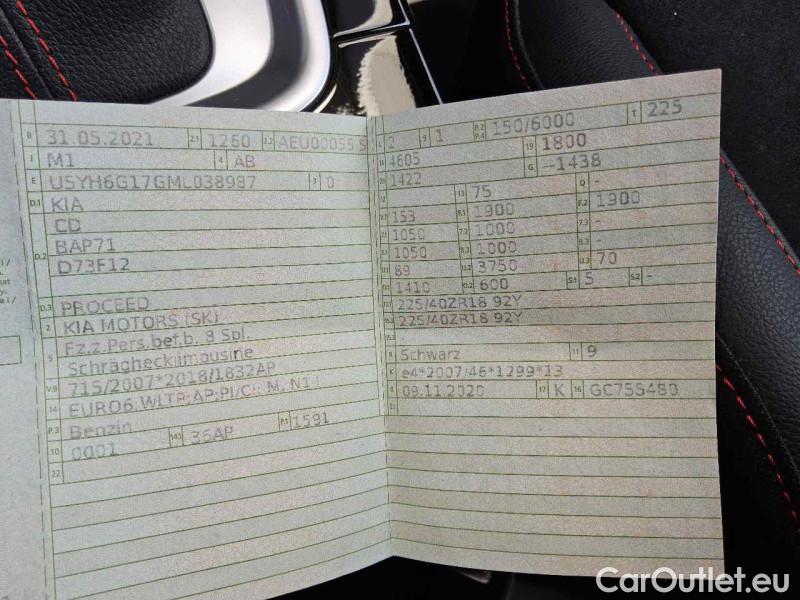 B 31.05.2021 2.1 1260 2.2 AEU00055 5
J M1 4 AB
E U5YH6G17GML038987 3 0
D.1 KIA
CD
D.2 BAP71
D73F12
D.3 PROCEED
2 KIA MOTORS (SK)
5 Fz.z.Pers.bef.b. 8 Spl.
Schräghecklimousine
V.9 715/2007*2018/1832AP
14 EURO6;WLTP;AP;PI/CI; M, N1 I
P.3 Benzin
10 0001 14.1 36AP P.1 1591
22
L 2 9 1 P.2 P.4 150/6000 T 225
18 4605 19 1800
20 1422 G -1438
12 - 13 75 Q -
V.7 153 F.1 1900 F.2 1900
7.1 1050 7.2 1000 7.3 -
8.1 1050 8.2 1000 8.3 -
U.1 89 U.2 3750 U.3 70
O.1 1410 O.2 600 S.1 5 S.2 -
15.1 225/40ZR18 92Y
15.2 225/40ZR18 92Y
R Schwarz 11 9
K e4*2007/46*1299*13
6 09.11.2020 17 K 16 GC755480
21
CarOutlet.eu